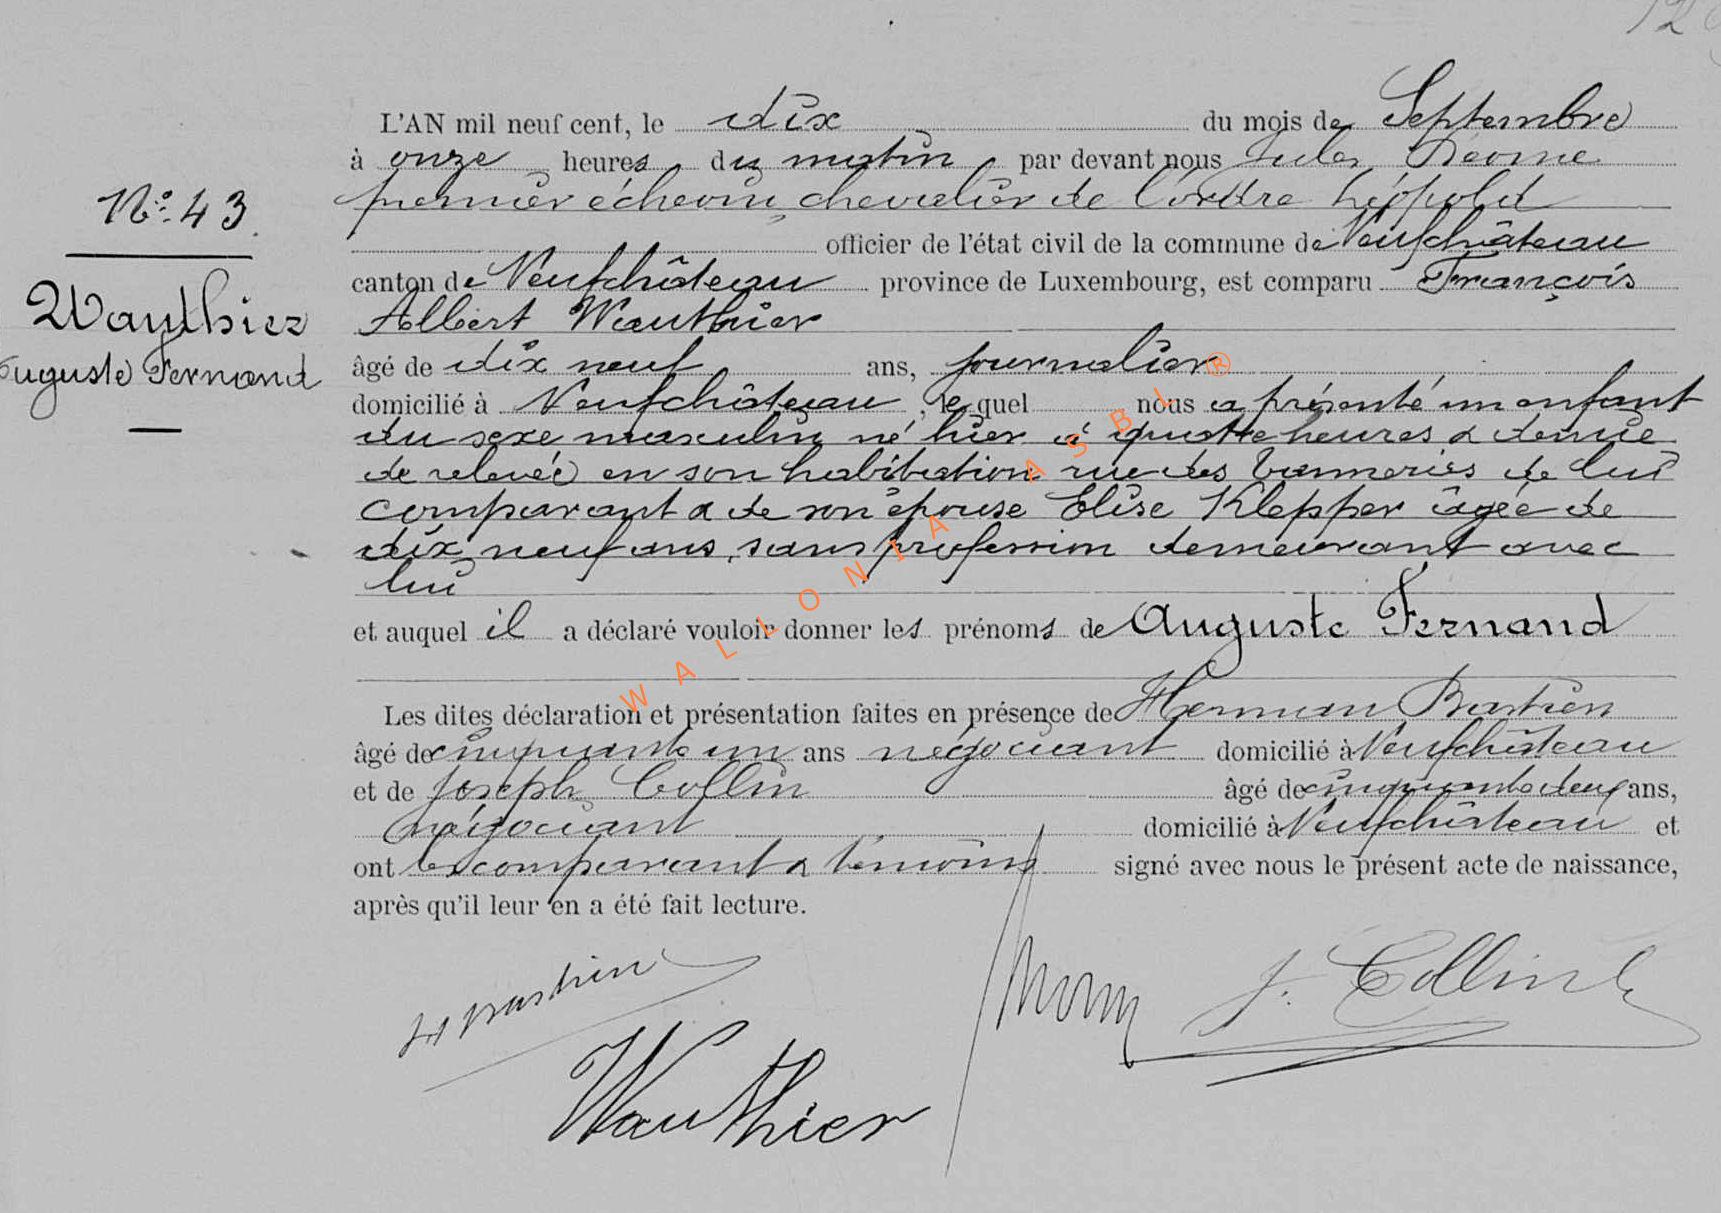 L'AN mil neuf cent, le dix du mois de Septembre
à onze heures du matin par devant nous Jules
premier échevin, chevalier de l'ordre Léopold
officier de l'état civil de la commune de Neufchâteau
canton de Neufchâteau province de Luxembourg, est comparu François
Albert Wauthier
âgé de dix neuf ans, journalier
domicilié à Neufchâteau, lequel nous a présenté un enfant
du sexe masculin né hier à quatre heures & demie
de relevée en son habitation rue des tanneries de lui
comparant & de son épouse Elise Klepper âgée de
dix neuf ans, sans profession demeurant avec
lui
et auquel il a déclaré vouloir donner les prénoms de Auguste Fernand
Les dites déclaration et présentation faites en présence de Herman Bastien
âgé de cinquante un ans négociant domicilié à Neufchâteau
et de Joseph Collin âgé de cinquante deux ans,
négociant domicilié à Neufchâteau et
ont les comparant & témoins signé avec nous le présent acte de naissance,
après qu'il leur en a été fait lecture.
N° 43.
Wauthier
Auguste Fernand
H Bastien
J. Collin
Wauthier
WALLONIA ASBL ®